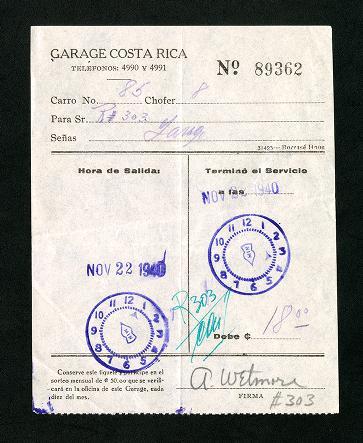 GARAGE COSTA RICA
TELÉFONOS: 4990 Y 4991
Nº 89362
Carro No. 85 Chofer 8
Para Sr. R# 303
Señas
31423—Borrasé Hnos
Hora de Salida:
Terminó el Servicio
a las
NOV 22 1940
NOV 22 1940
12 1 2 3 4 5 6 7 8 9 10 11
12 1 2 3 4 5 6 7 8 9 10 11
R 303
Debe ₡ 18.00
Conserve este tiquete y participe en el
sorteo mensual de ₡ 50.00 que se verifi-
cará en la oficina de este Garage, cada
diez del mes.
A. Wetmore
FIRMA
#303